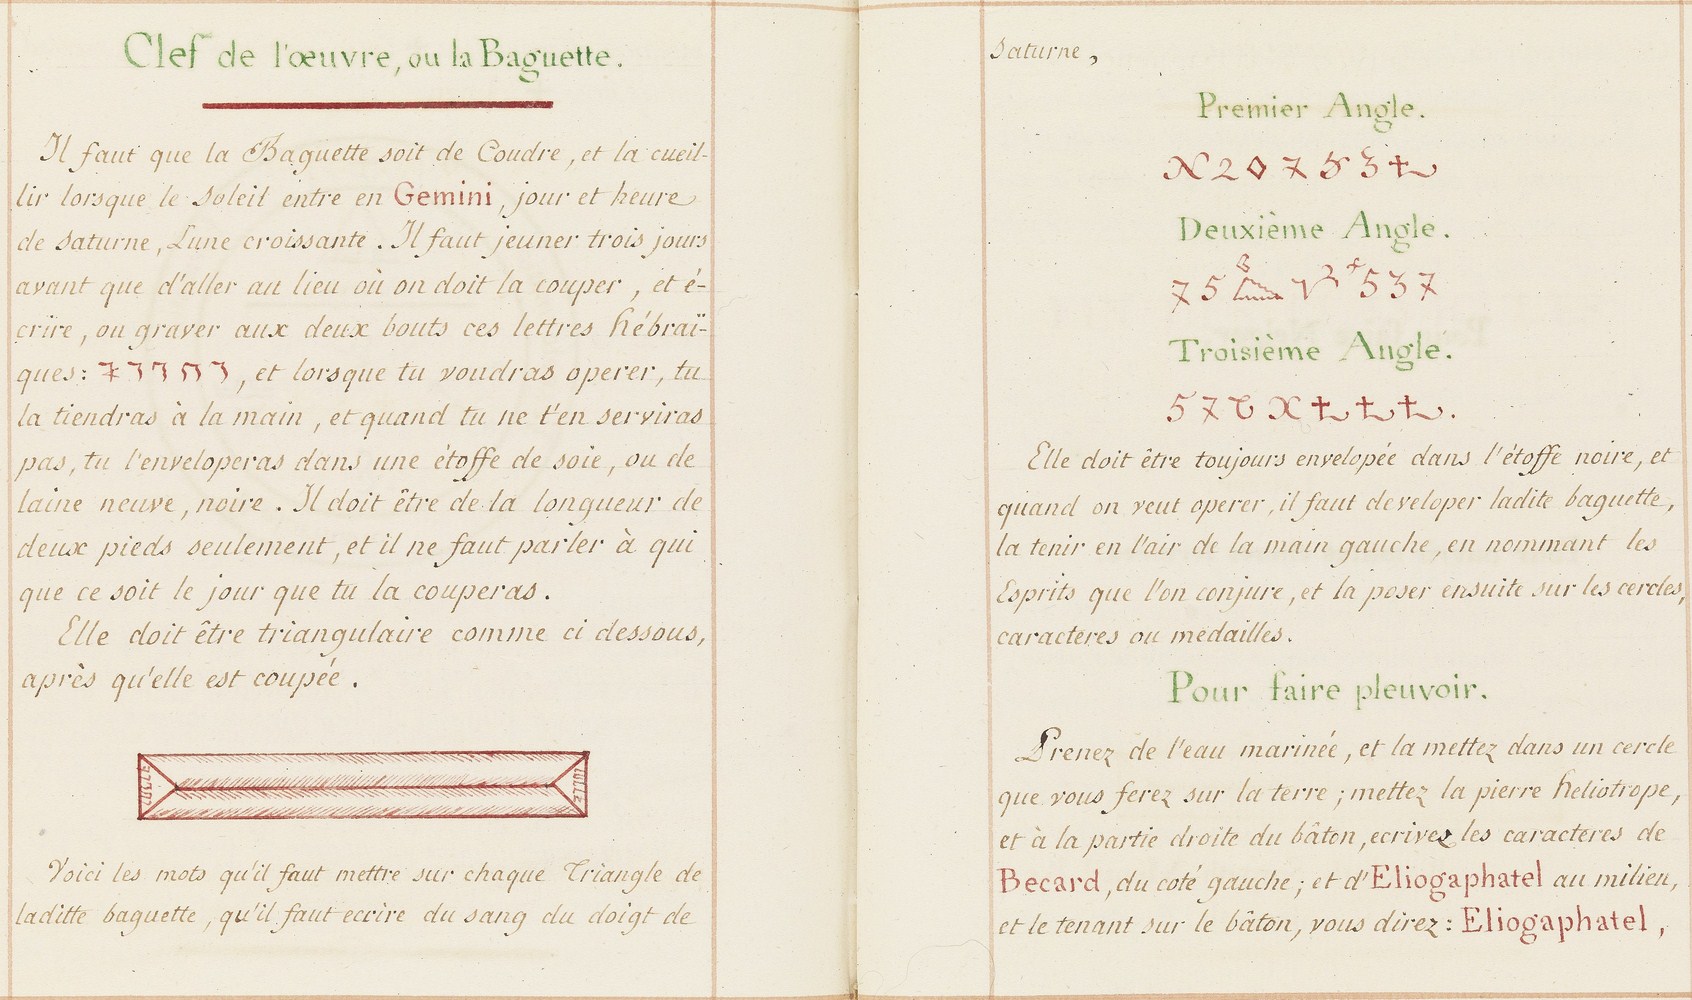 Clef de l'œuvre, ou la Baguette.
Il faut que la Baguette soit de Coudre, et la cueil-
lir lorsque le Soleil entre en Gemini, jour et heure
de Saturne, Lune croissante. Il faut jeuner trois jours
avant que d'aller au lieu où on doit la couper, et é-
crire, ou graver aux deux bouts ces lettres hébraï-
ques: , et lorsque tu voudras operer, tu
la tiendras à la main, et quand tu ne t'en serviras
pas, tu l'enveloperas dans une étoffe de soie, ou de
laine neuve, noire. Il doit être de la longueur de
deux pieds seulement, et il ne faut parler à qui
que ce soit le jour que tu la couperas.
Elle doit être triangulaire comme ci dessous,
après qu'elle est coupée.
Voici les mots qu'il faut mettre sur chaque Triangle de
laditte baguette, qu'il faut ecrire du sang du doigt de
Saturne,
Premier Angle.
Deuxième Angle.
Troisième Angle.
Elle doit être toujours envelopée dans l'étoffe noire, et
quand on veut operer, il faut developer ladite baguette,
la tenir en l'air de la main gauche, en nommant les
Esprits que l'on conjure, et la poser ensuite sur les cercles,
caracteres ou medailles.
Pour faire pleuvoir.
Prenez de l'eau marinée, et la mettez dans un cercle
que vous ferez sur la terre; mettez la pierre heliotrope,
et à la partie droite du bâton, ecrivez les caracteres de
Becard, du coté gauche; et d'Eliogaphatel au milieu,
et le tenant sur le bâton, vous direz: Eliogaphatel,